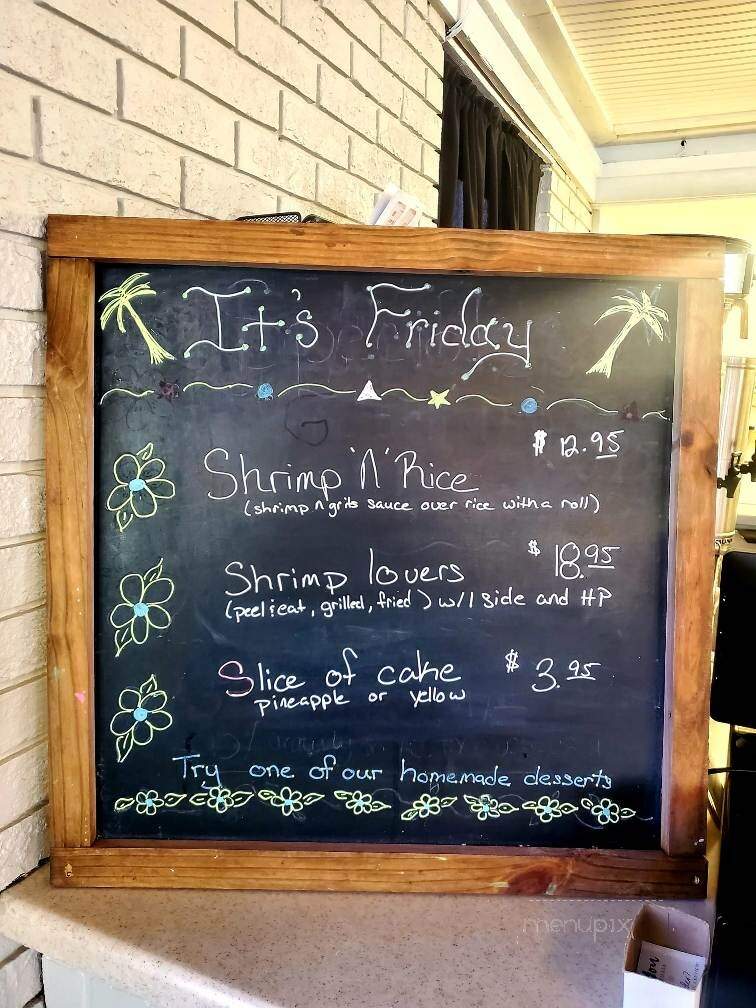 It's Friday
$ 12.95
Shrimp 'N' Rice
(shrimp n grits sauce over rice with a roll)
$ 18.95
Shrimp lovers
(peel & eat, grilled, fried) w/1 side and HP
$ 3.95
Slice of cake
pineapple or yellow
Try one of our homemade desserts
menupix